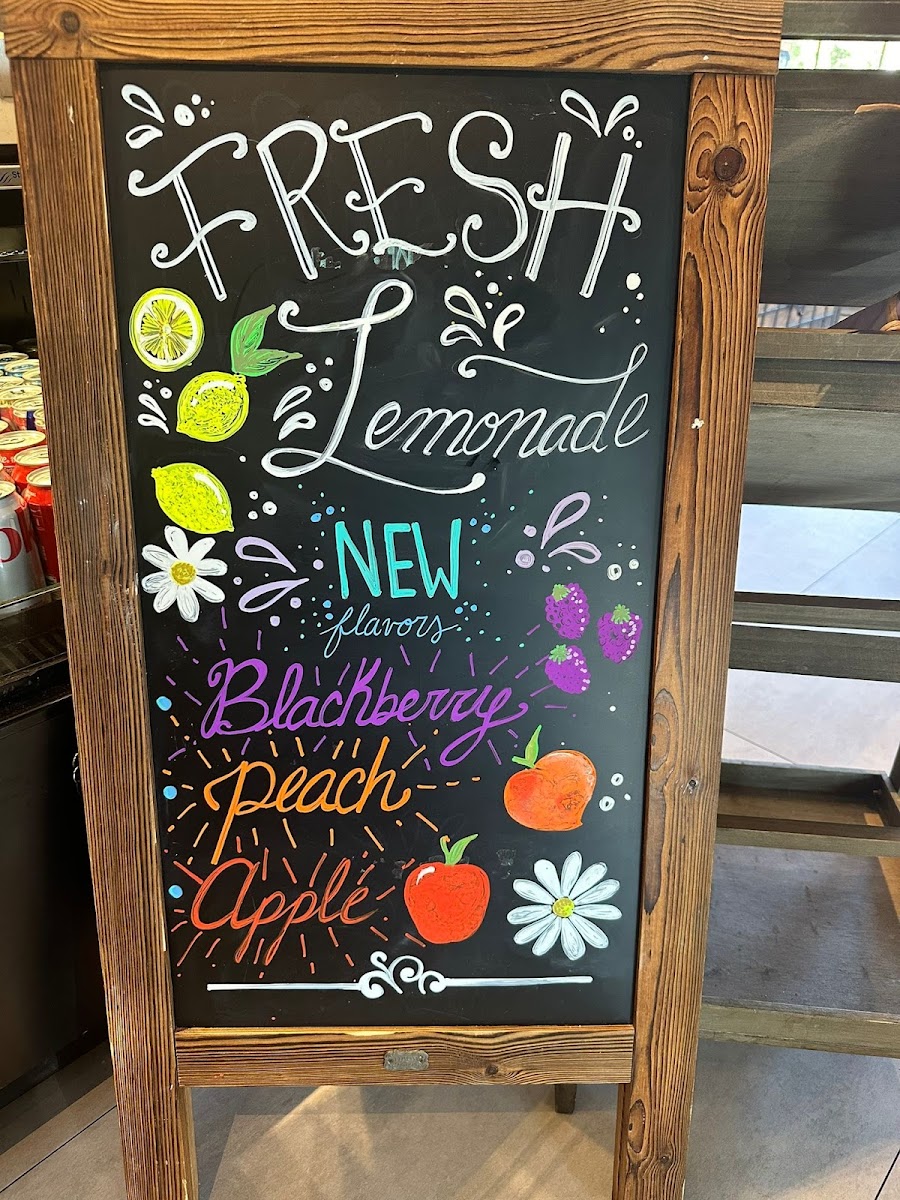 FRESH
Lemonade
NEW
flavors
Blackberry
peach
Apple